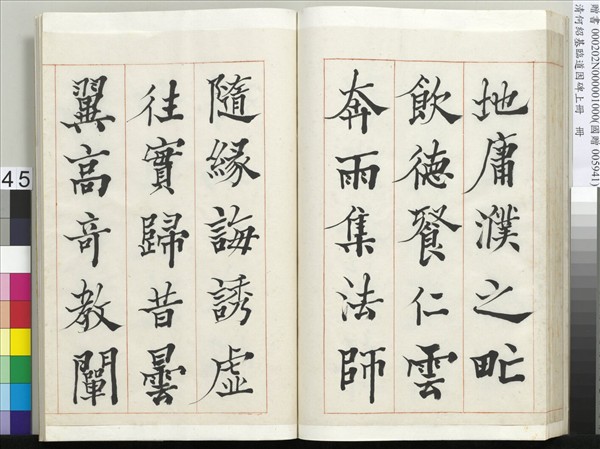 地庸濮之甿
飲德餐仁雲
奔雨集法師
隨緣誨誘虛
往實歸昔曇
翼高奇教闡
贈書 000202N000001000(國贈 005941)
清何紹基臨道因碑上冊 冊
45